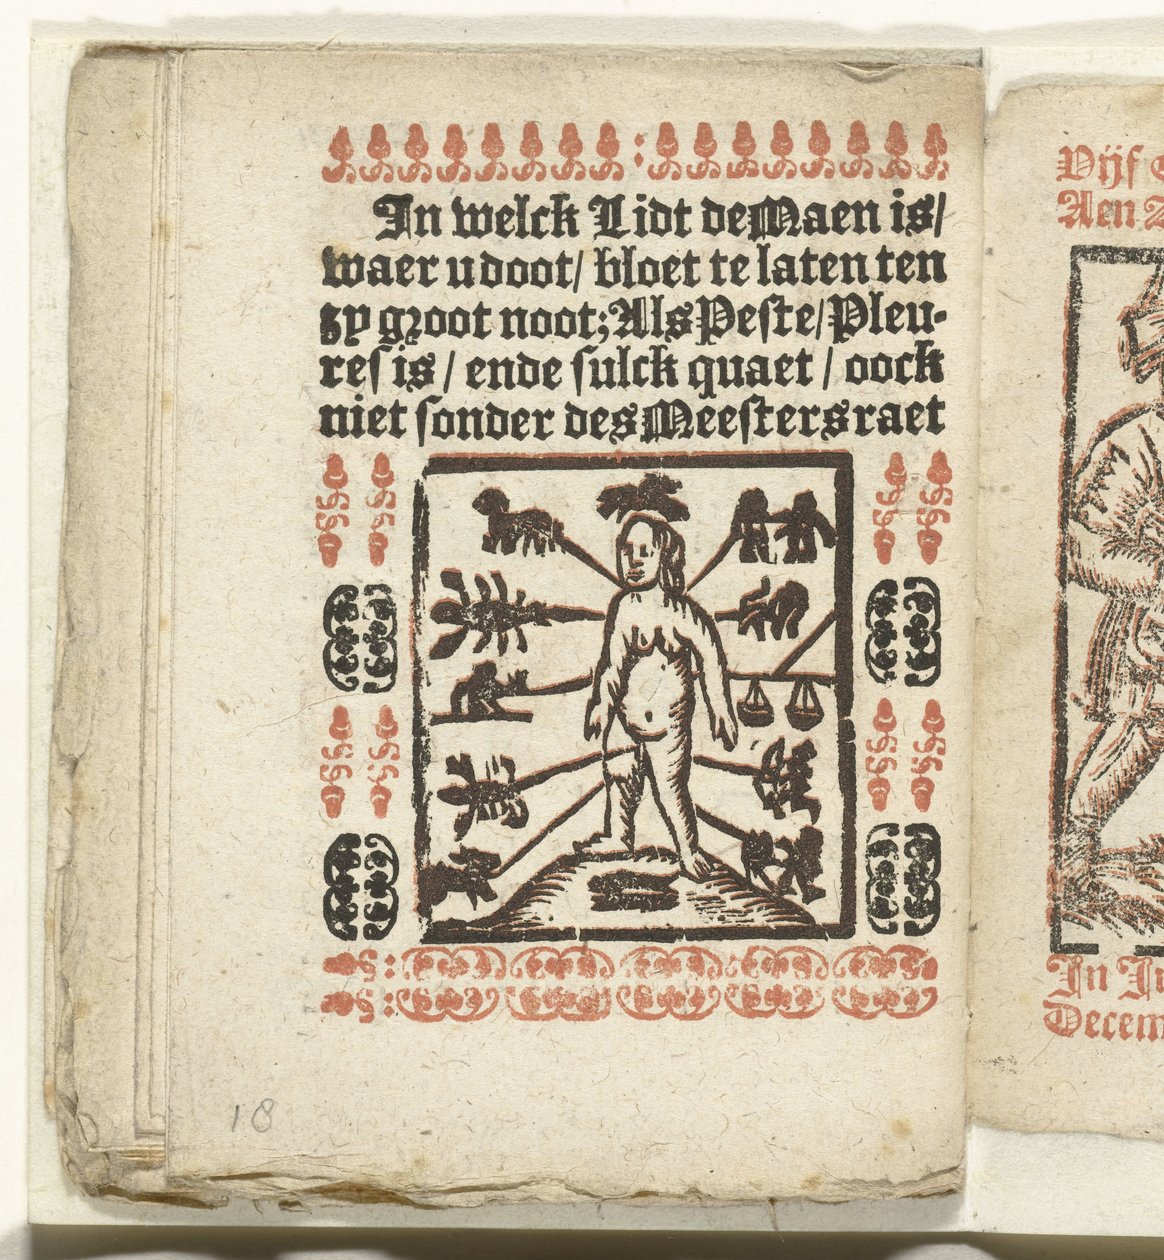 In welck Lidt de Maen is/
waer u doot/ bloet te laten ten
zy groot noot; Als Peste/ Pleu-
resis / ende sulck quaet / oock
niet sonder des Meesters raet
18
Vijf
Aen
In
Decem